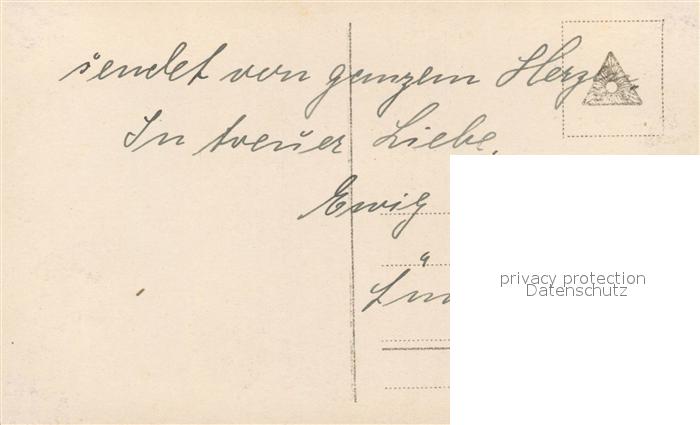 sendet von ganzem Herzen.
In treuer Liebe,
Ewig
privacy protection
Datenschutz